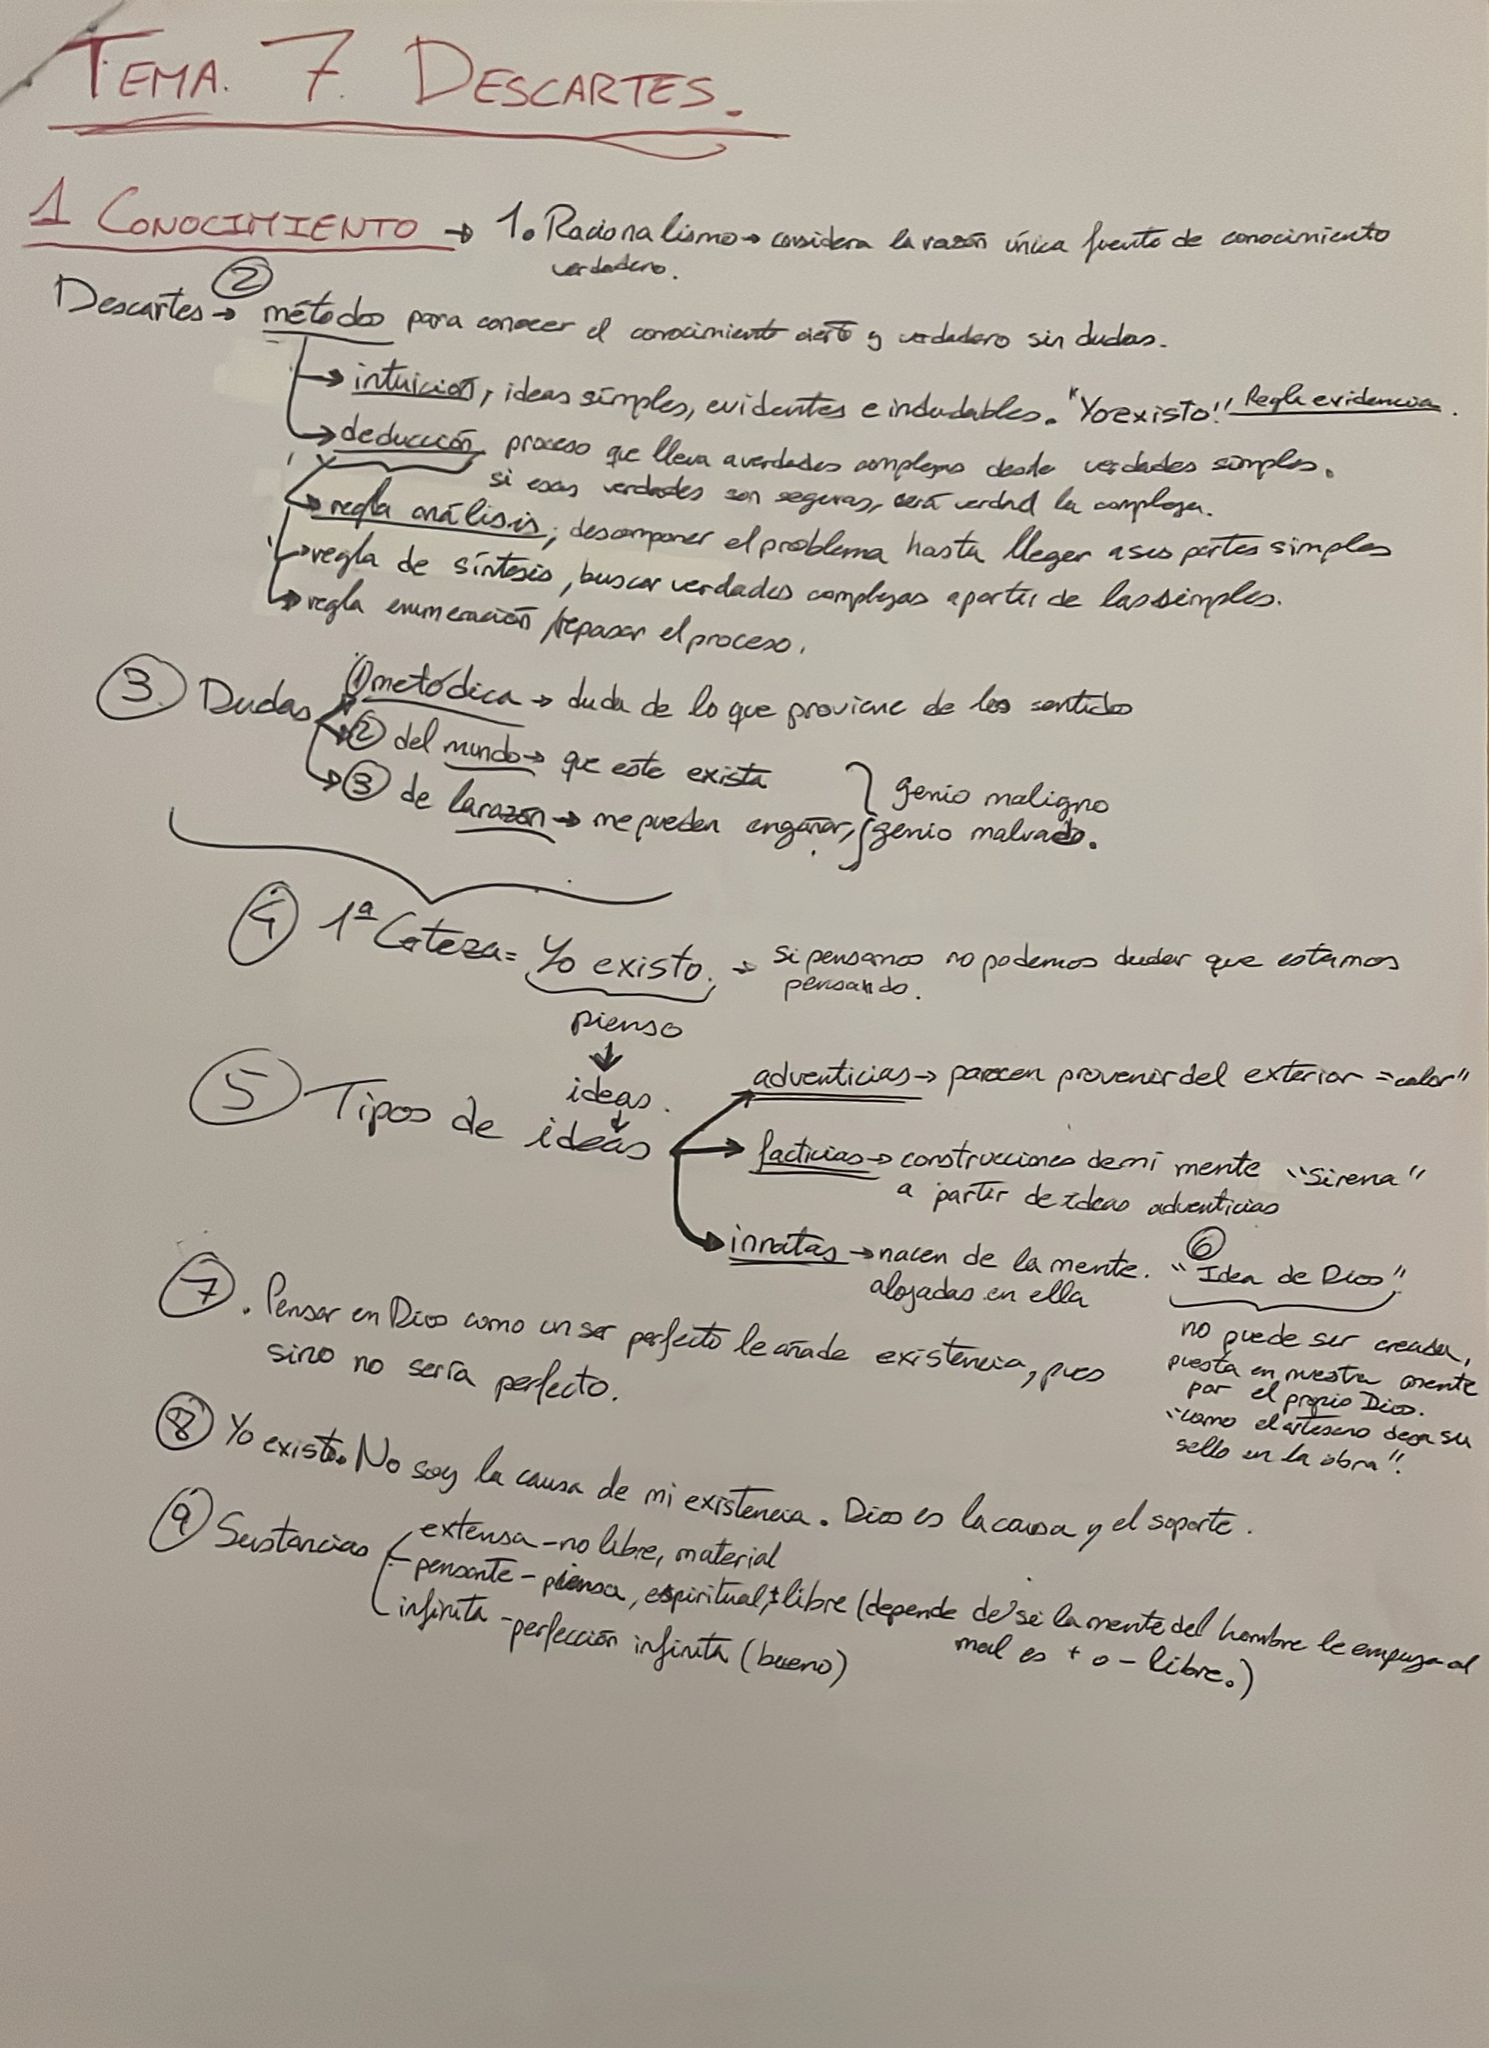 TEMA. 7. DESCARTES.
1 CONOCIMIENTO → 1. Racionalismo → considera la razón única fuente de conocimiento
verdadero.
Descartes → ② métodos para conocer el conocimiento cierto y verdadero sin dudas.
→ intuición, ideas simples, evidentes e indudables. "Yo existo!" Regla evidencia.
→ deducción proceso que lleva a verdades complejas desde verdades simples.
si esas verdades son seguras, será verdad la compleja.
→ regla análisis; descomponer el problema hasta llegar a sus partes simples
→ regla de síntesis, buscar verdades complejas a partir de las simples.
→ regla enumeración, repasar el proceso.
③ Dudas ① metódica → duda de lo que proviene de los sentidos
② del mundo → que este exista
③ de la razón → me pueden engañar,
genio maligno
genio malvado.
④ 1ª Certeza = Yo existo. → si pensamos no podemos dudar que estamos
pensando.
pienso
↓
ideas.
↓
⑤ Tipos de ideas
adventicias → parecen provenir del exterior = "calor"
facticias → construcciones de mi mente "Sirena"
a partir de ideas adventicias
innatas → nacen de la mente. ⑥ "Idea de Dios"
alojadas en ella
no puede ser creada,
puesta en nuestra mente
por el propio Dios.
"como el artesano deja su
sello en la obra".
⑦. Pensar en Dios como un ser perfecto le añade existencia, pues
sino no sería perfecto.
⑧ Yo existo. No soy la causa de mi existencia. Dios es la causa y el soporte.
⑨ Sustancias
extensa - no libre, material
pensante - piensa, espiritual, ± libre (depende de si la mente del hombre le empuja al
mal es + o - libre.)
infinita - perfección infinita (bueno)